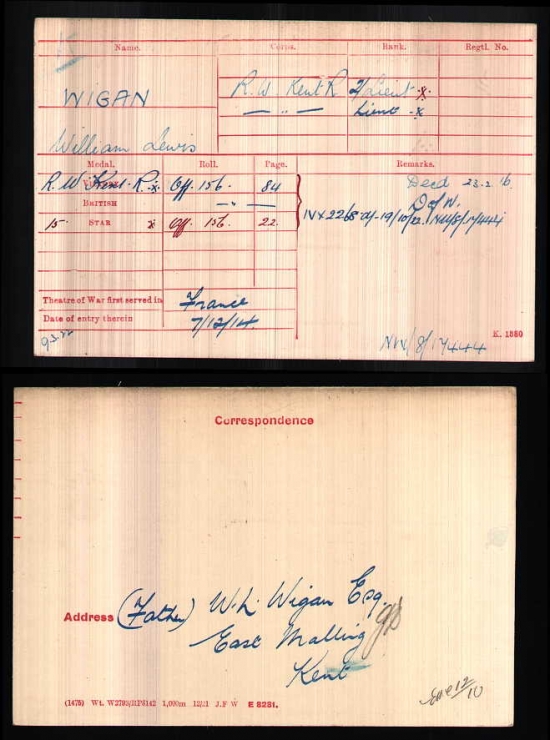 Name. Corps. Rank. Regtl. No.
WIGAN R. W. Kent R 2/Lieut x.
— " — Lieut -x
William Lewis
Medal. Roll. Page. Remarks.
R. W. Kent. R. x. Off. 156. 84 Decd 23-2.16.
BRITISH — " — D of W.
15 STAR x Off. 156. 22.
Theatre of War first served in France
Date of entry therein 7/12/14
NW/8/17444 K. 1380
Correspondence
Address (Father) W. L. Wigan Esq
East Malling
Kent
(1475) Wt. W2793/RP8142 1,000m 12/21 J.F W E 8281.